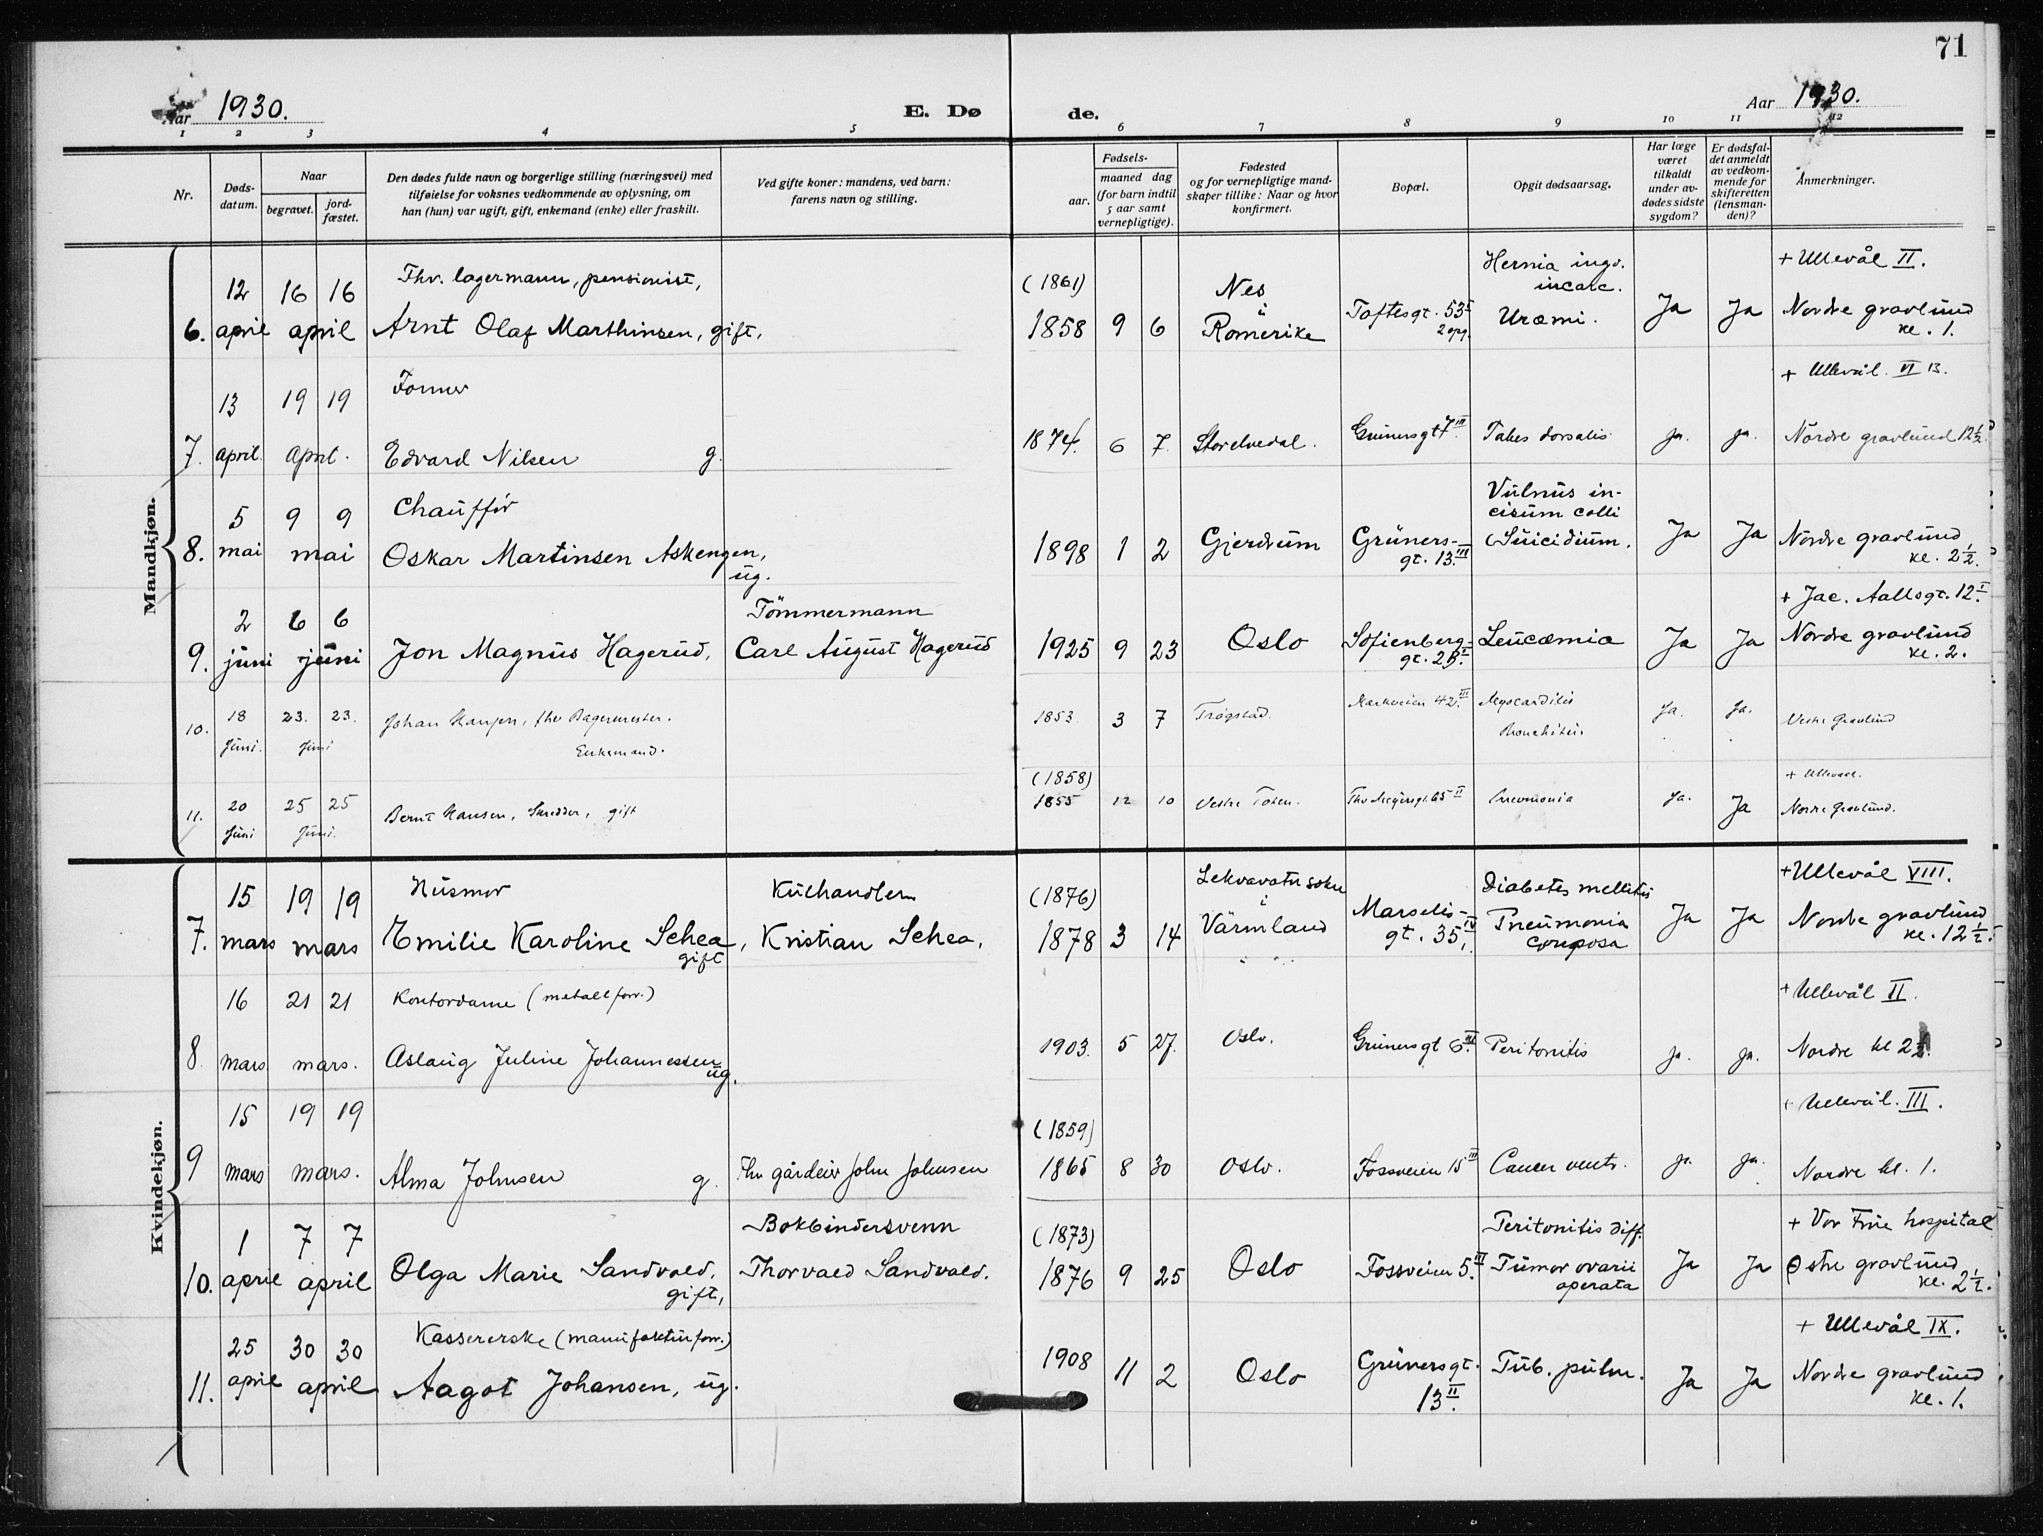 71
Aar 1930.
E. Døde.
Aar 1930.
1 2 3 4 5 6 7 8 9 10 11 12
Nr.
Døds-
datum.
Naar
begravet.
jord-
fæstet.
Den dødes fulde navn og borgerlige stilling (næringsvei) med
tilføielse for voksnes vedkommende av oplysning, om
han (hun) var ugift, gift, enkemand (enke) eller fraskilt.
Ved gifte koner: mandens, ved barn:
farens navn og stilling.
Fødsels-
aar.
maaned dag
(for barn indtil
5 aar samt
vernepligtige).
Fødested
og for vernepligtige mand-
skaper tillike: Naar og hvor
konfirmert.
Bopæl.
Opgit dødsaarsag.
Har læge
været
tilkaldt
under av-
dødes sidste
sygdom?
Er dødsfal-
det anmeldt
av vedkom-
mende for
skifteretten
(lensman-
den)?
Anmerkninger.
Mandkjøn.
12 16 16 Fhv. lagermann, pensionist, (1861) Nes Hernia ingv. + Ullevål II.
i incarc.
6. april april Arnt Olaf Marthinsen, gift, 1858 9 6 Romerike Toftesgt. 53 2 opg. Uræmi. Ja Ja Nordre gravlund
kl. 1.
13 19 19 Former + Ullevål. VI 13.
7. april april. Edvard Nilsen g. 1874. 6 7. Storelvedal. Grünersgt 7 III Tabes dorsalis ja. ja. Nordre gravlund 12 1/2.
5 9 9 Chauffør Vulnus in-
cisum colli
8. mai mai Oskar Martinsen Askengen, 1898 1 2 Gjerdrum Grüners- Suicidium. Ja Ja Nordre gravlund
ug. gt. 13. III kl. 2 1/2.
2 6 6 Tömmermann + Jac. Aallsgt. 12. I
9. juni juni Jon Magnus Hagerud, Carl August Hagerud 1925 9 23 Oslo Sofienberg- Leucæmia Ja Ja Nordre gravlund
gt. 25. kl. 2.
10. 18 23. 23. Johan , fhv Bagermester. 1853. 3 7 Trøgstad. Markveien 42. III Myocarditis Ja. Ja. Vestre Gravlund
Juni. Juni Enkemand.
(1858) + Ullevaal.
11. 20 25 25 Bernt Hansen, Skredder, gift 1855 12 10 Vestre Toten. Thv Meyersgt. 65 II Pneumonia Ja. Ja Nordre Gravlund.
Juni Juni.
Kvindekjøn.
15 19 19 Husmor Kulhandler (1876) Diabetes mellitus + Ullevål VIII.
i
7. mars mars Emilie Karoline Schea, Kristian Schea. 1878 3 14 Värmland Marselis- Pneumonia Ja Ja Nordre gravlund
gift gt. 35. IV kl. 12 1/2.
16 21 21 Kontordame (metallforr.) + Ullevål II.
8. mars mars. Aslaug Juline Johannessen 1903. 5 27. Oslo. Grünersgt 6. III Peritonitis ja. ja. Nordre kl 2
ug.
15 19 19 (1859) + Ullevål. III.
9 mars mars. Alma Johnsen g. Fhv gårdeier John Johnsen 1865 8 30 Oslo. Fossveien 15 III Cancer ventr. ja. ja. Nordre kl. 1.
1 7 7 Bokbindersvenn (1873) Peritonitis diff. + Vor Frue hospital
10. april april Olga Marie Sandvold, Thorvald Sandvold. 1876 9 25 Oslo Fossveien 5. III Tumor ovarii Ja Ja Østre gravlund
gift, operata kl. 2 1/2.
25 30 30 Kassererske (manufakturforr.) + Ullevål IX.
11. april april Aagot Johansen, ug. 1908 11 2 Oslo Grünersgt. Tub. pulm. Ja Ja Nordre gravlund
13. II kl. 1.